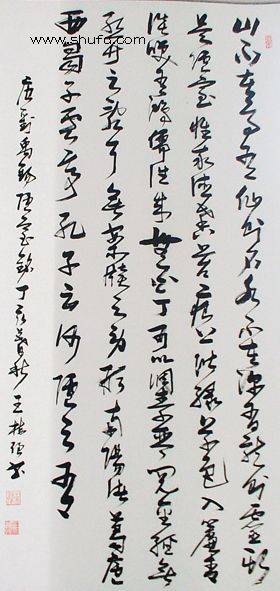 www.shufa.com
山不在高有仙則名水不在深有龍則靈斯
是陋室惟吾德馨苔痕上階綠草色入簾青
談笑有鴻儒往來無白丁可以調素琴閱金經無
絲竹之亂耳無案牘之勞形南陽諸葛廬
西蜀子雲亭孔子云何陋之有
唐劉禹錫陋室銘丁亥 王 書